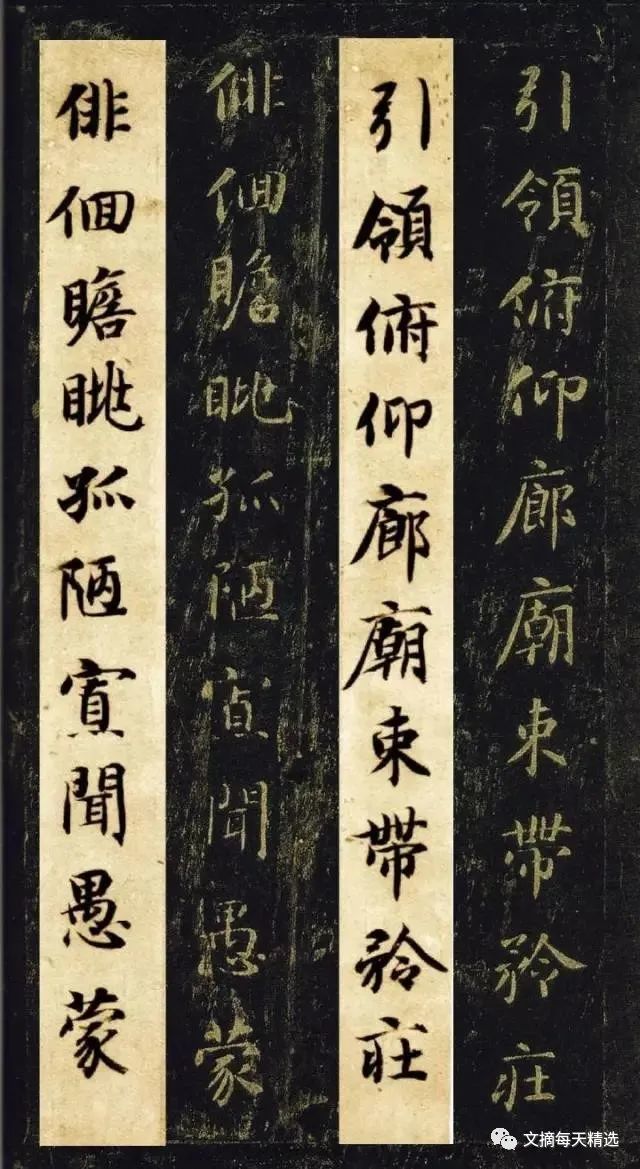 引領俯仰廊廟束帶矜莊
引領俯仰廊廟束帶矜莊
俳佪瞻眺孤陋寡聞愚蒙
俳佪瞻眺孤陋寡聞愚蒙
文摘每天精选